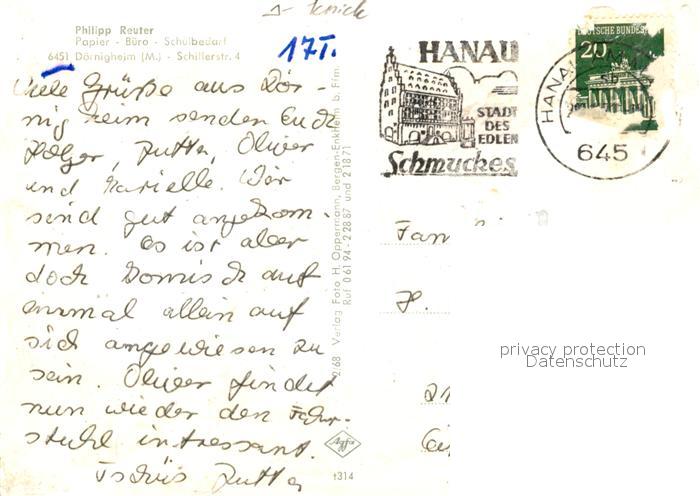 Knick
Philipp Reuter
Papier - Büro - Schulbedarf
6451 Dörnigheim (M.) - Schillerstr. 4
17I.
Viele Grüße aus Dör-
nigheim senden Euch
Holger, Jutta, Oliver
und Marielle. Wir
sind gut angekom-
men. Es ist aber
doch komisch auf
einmal allein auf
sich angewiesen zu
sein. Oliver findet
nun wieder den Fahr-
stuhl intressant.
Tschüs Jutta
2/68 Verlag Foto H. Oppermann, Bergen-Enkheim b. Ffm.
Ruf 0 61 94 - 2 28 87 und 2 18 71
Agfa
t314
HANAU
STADT
DES
EDLEN
Schmuckes
HANAU
645
DEUTSCHE BUNDES
20
Fam
H.
21
privacy protection
Datenschutz